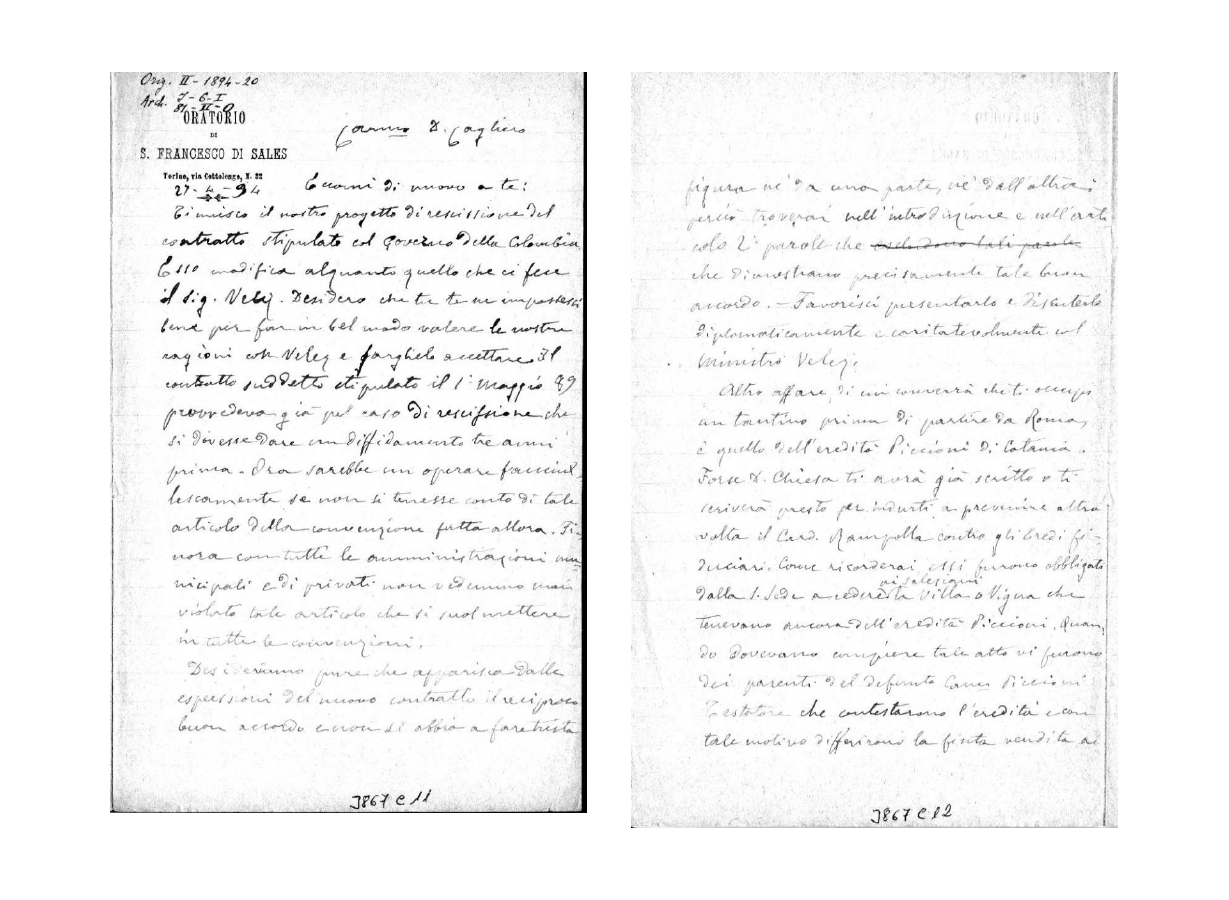 Orig. II - 1894-20
Arch. J-6-I
81-II-0
ORATORIO
DI
S. FRANCESCO DI SALES
Torino, via Cottolengo, N. 32
27-4-94
Carmo D. Cagliero
Eccomi di nuovo a te:
Ti unisco il nostro progetto di rescissione del
contratto stipulato col Governo della Colombia
Esso modifica alquanto quello che ci fece
il Sig. Velez. Desidero che tu te ne impossessi
bene per far in bel modo valere le nostre
ragioni con Velez e farghelo accettare. Il
contratto suddetto stipulato il 1° Maggio 89
provvedeva già pel caso di rescissione che
si dovesse dare un diffidamento tre anni
prima. Ora sarebbe un operare fanciul-
lescamente se non si tenesse conto di tale
articolo della convenzione fatta allora. Fi-
nora con tutte le amministrazioni mu-
nicipali e di privati non vedemmo mai
violato tale articolo che si suol mettere
in tutte le convenzioni.
Desideriamo pure che apparisca dalle
espressioni del nuovo contratto il reciproco
buon accordo e non si abbia a fare trista
J867 C 11
figura nè da una parte, nè dall'altra;
perciò troverai nell'introduzione e nell'arti
colo 2° parole che escludono tali parole
che dimostrano precisamente tale buon
accordo. - Favorisci presentarlo e discuterlo
diplomaticamente e caritatevolmente col
Ministro Velez.
Altro affare, di cui converrà che ti occupi
un tantino prima di partire da Roma,
è quello dell'eredità Piccioni di Catania.
Forse D. Chiesa ti avrà già scritto o ti
scriverà presto per indurti a prevenire altra
volta il Card. Rampolla contro gli Eredi fi-
duciari. Come ricorderai essi furono obbligati
ai salesiani
dalla S. Sede a cedere la Villa o Vigna che
tenevano ancora dell'eredità Piccioni. Quan-
do dovevano compiere tale atto vi furono
dei parenti del defunto Canco Piccioni
Testatore che contestarono l'eredità e con
tale motivo differirono la finta vendita ai
J867 C 12